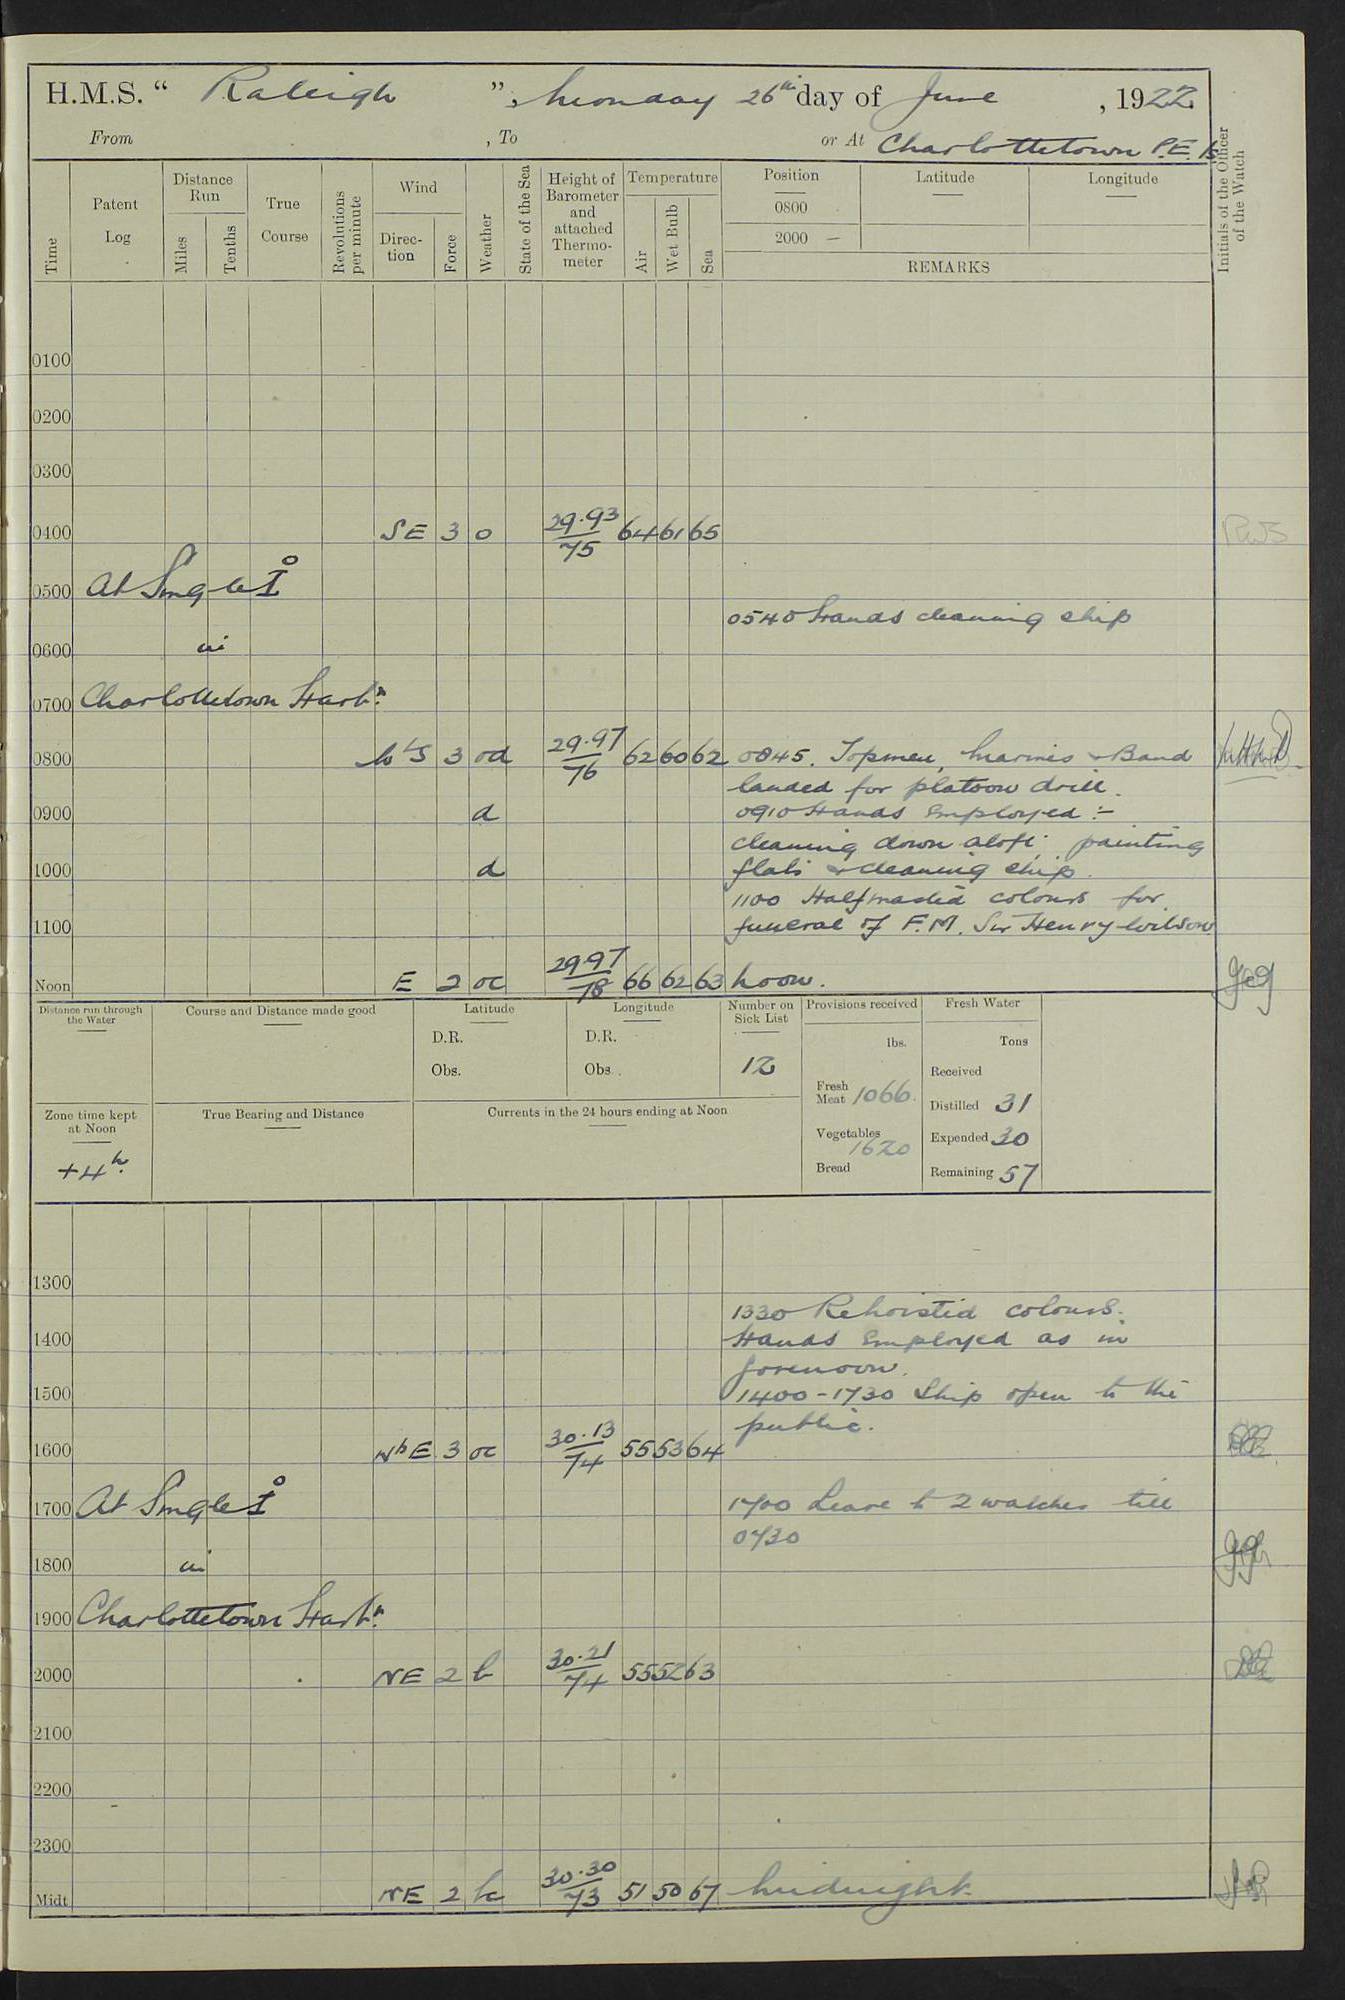 H.M.S. “ Raleigh ”, Monday 26th day of June , 1922
From , To or At Charlottetown P.E. Is.
Time
Patent Log
Distance Run
Miles
Tenths
True Course
Revolutions per minute
Wind
Direc-tion
Force
Weather
State of the Sea
Height of Barometer and attached Thermo-meter
Temperature
Air
Wet Bulb
Sea
Position
0800
2000 —
Latitude
Longitude
REMARKS
Initials of the Officer of the Watch
0100
0200
0300
0400 SE 3 o 29.93/75 64 61 65
0500 At Single
0540 Hands cleaning ship
0600 in
0700 Charlottetown Harbr.
0800 3 od 29.97/76 62 60 62 0845. Topmen, Marines & Band
landed for platoon drill.
0900 d 0910 Hands Employed :-
cleaning down aloft, painting
1000 d flats & cleaning ship.
1100 Halfmasted colours for
1100 funeral of F.M. Sir Henry Wilson
Noon E 2 oc 29.97/78 66 62 63 Noon.
Distance run through the Water
Course and Distance made good
Latitude
D.R.
Obs.
Longitude
D.R.
Obs.
Number on Sick List
12
Provisions received
lbs.
Fresh Meat 1066
Vegetables 1620
Bread
Fresh Water
Tons
Received
Distilled 31
Expended 30
Remaining 57
Zone time kept at Noon
+4h.
True Bearing and Distance
Currents in the 24 hours ending at Noon
1300
1330 Rehoisted colours.
1400 Hands Employed as in
forenoon.
1500 1400-1730 Ship open to the
public.
1600 NbE 3 oc 30.13/74 55 53 64
1700 At Single 1700 Leave to 2 watches till
0730
1800 in
1900 Charlottetown Harbr.
2000 NE 2 b 30.21/74 55 52 63
2100
2200
2300
Midt NE 2 bc 30.30/73 51 50 67 Midnight.